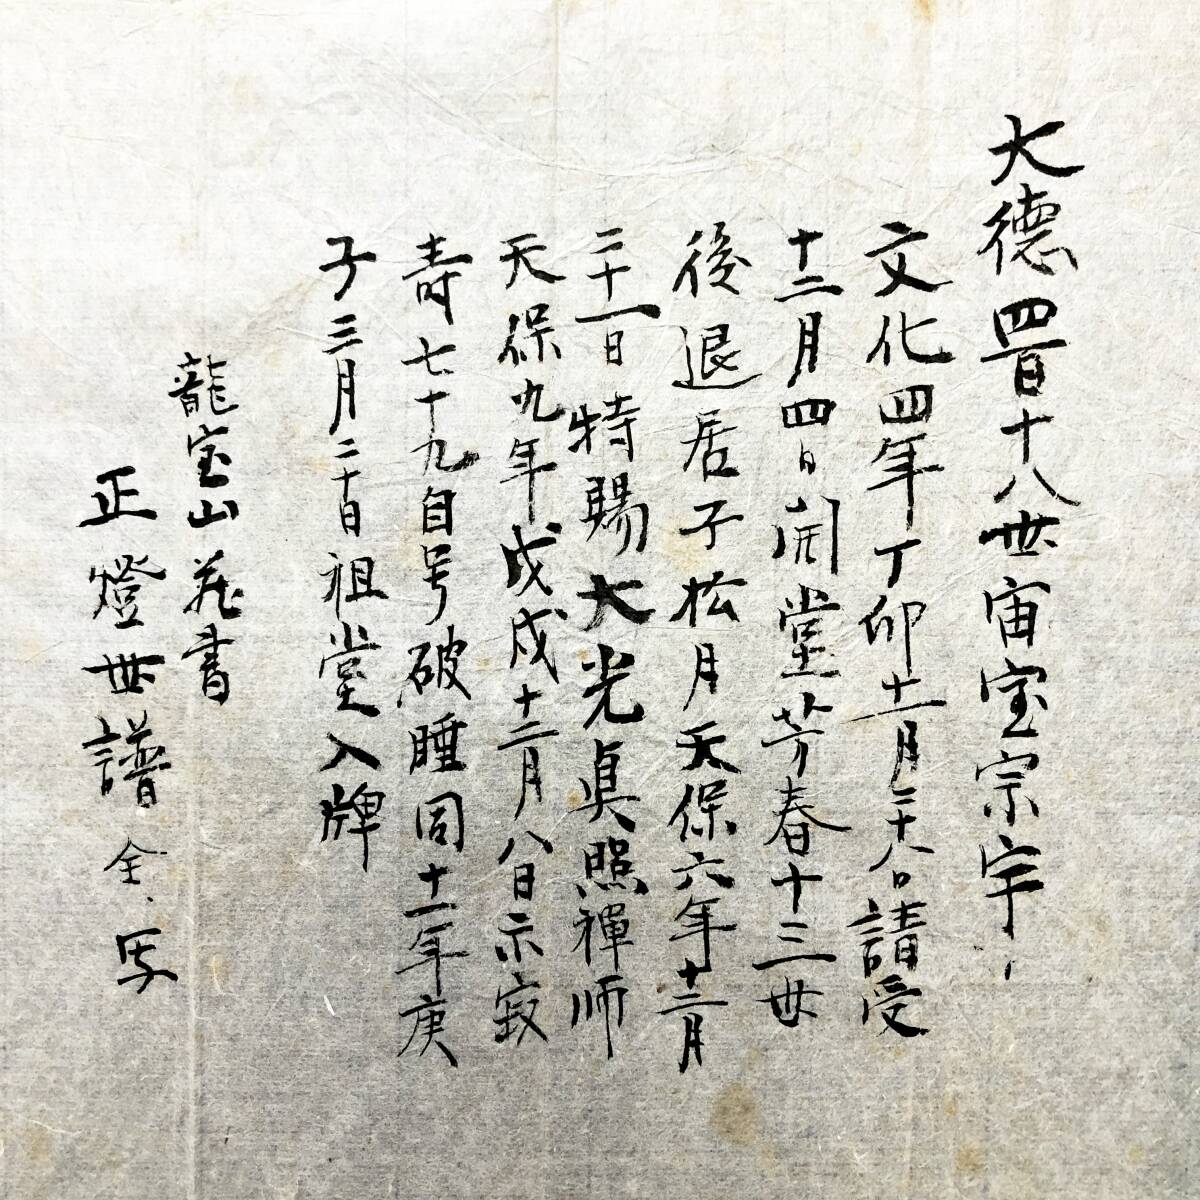 大德四百十八世宙宝宗宇
文化四年丁卯十一月二十八日請受
十二月四日開堂芳春十三世
後退居子松月天保六年十二月
二十一日特賜大光眞照禅师
天保九年戊戌十二月八日示寂
寿七十九自号破睡同十一年庚
子三月二十日祖堂入牌
龍宝山蔵書
正燈世譜 写